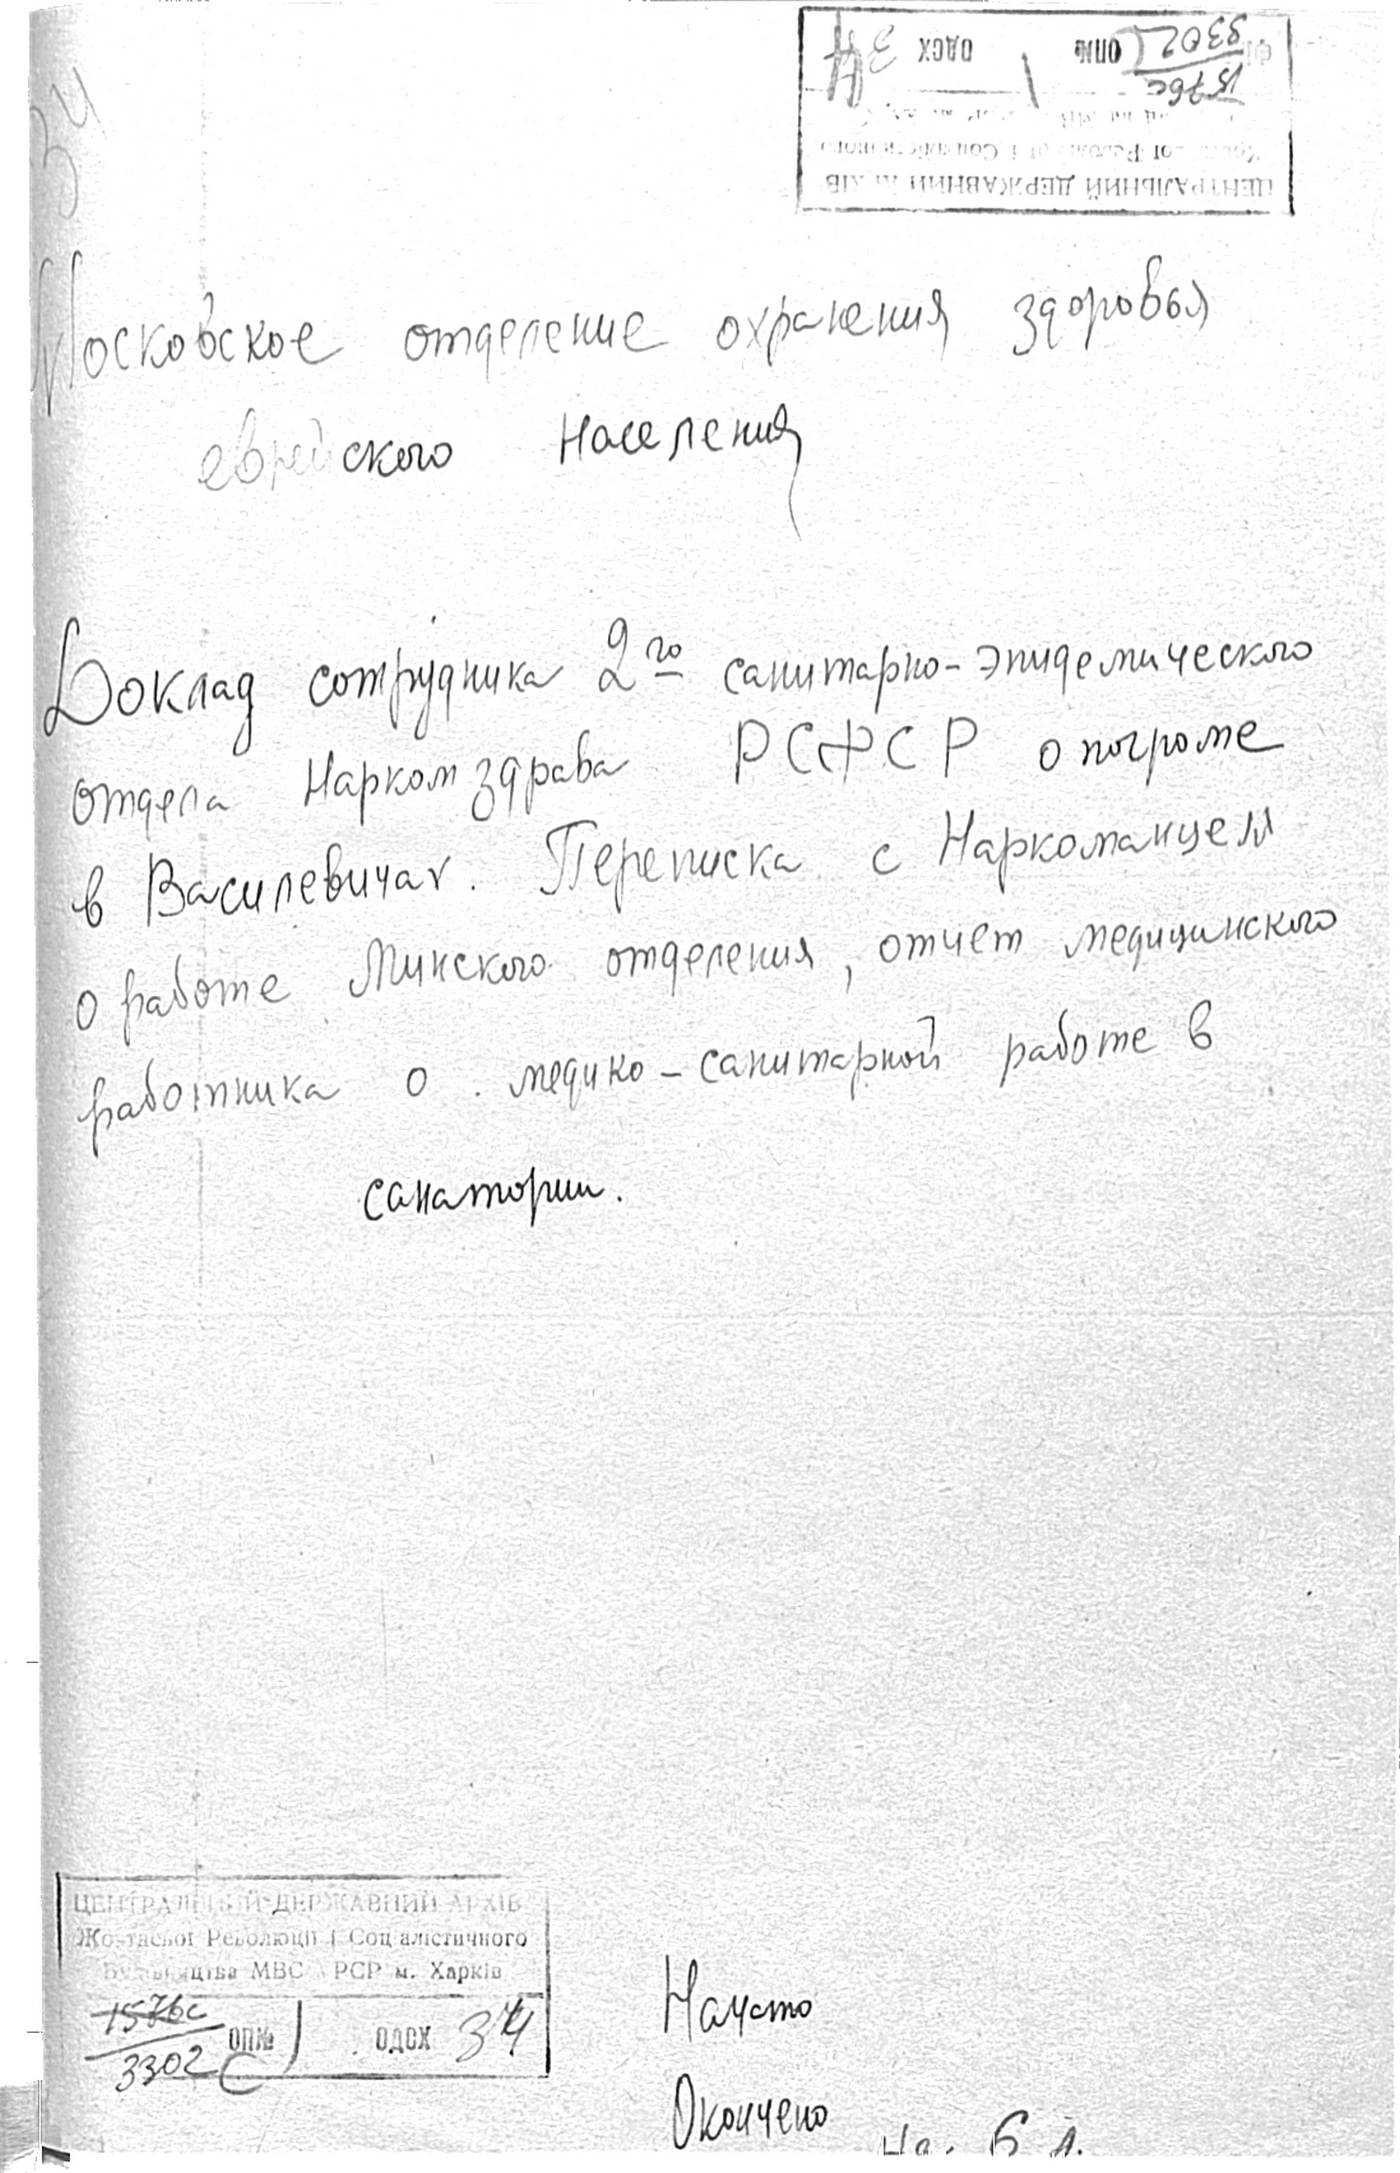 34
ЦЕНТРАЛЬНИЙ ДЕРЖАВНИЙ АРХІВ
1576с
3302 ОПИС 1 ОДСХ 34
Московское отделение охранения здоровья
еврейского населения
Доклад сотрудника 2го санитарно-эпидемического
отдела Наркомздрава РСФСР о погроме
в Василевичах. Переписка с Наркоманцем
о работе Минского отделения, отчет медицинского
работника о медико-санитарной работе в
санатории.
ЦЕНТРАЛЬНИЙ ДЕРЖАВНИЙ АРХІВ
Жовтневої Революції і Соціалістичного
Будівництва МВС УРСР м. Харків
1576с
3302с ОП№ 1 ОДСХ 34
Начато
Окончено
На 6 л.